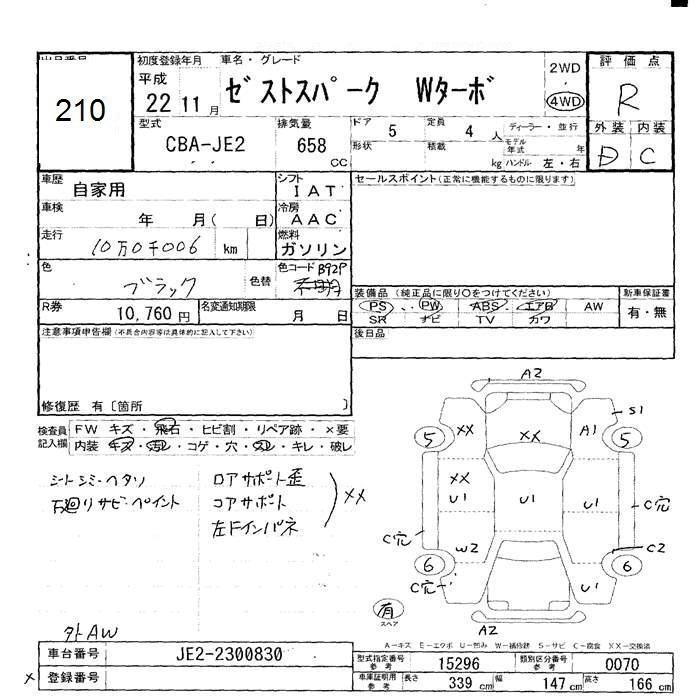 出品番号
210
初度登録年月
平成
22 11 月
車名・グレード
ゼストスパーク Wターボ
2WD
4WD
評価点
R
外装 内装
D C
型式
CBA-JE2
排気量
658
cc
ドア
5
形状
定員
4 人
積載
kg
ディーラー・並行
モデル年式 年
ハンドル 左・右
車歴
自家用
シフト
I A T
車検
年 月( 日)
冷房
A A C
走行
10万0千006 km
燃料
ガソリン
色
ブラック
色替
色コード B92P
R券
10,760 円
名変通知期限
月 日
セールスポイント(正常に機能するものに限ります)
装備品 (純正品に限り〇をつけてください)
PS PW ABS エアB AW
SR ナビ TV カワ
新車保証書
有・無
後日品
注意事項申告欄(不具合内容等は具体的に記入して下さい)
修復歴 有〔箇所 〕
検査員記入欄
FW キズ・飛石・ヒビ割・リペア跡・×要
内装 キズ・汚レ・コゲ・穴・スレ・キレ・破レ
シートシミ・ヘタリ
下廻りサビ・ペイント
ロアサポート歪
コアサポート
左Fインパネ
XX
外AW
A2
S1
5
XX
XX
A1
5
XX
U1
U1
U1
C穴
C穴
W2
C2
6
6
C穴
U1
有
スペア
A2
A-キズ E-エクボ U-凹み W-補修跡 S-サビ C-腐食 XX-交換済
車台番号
JE2-2300830
×
登録番号
型式指定番号
参考
15296
類別区分番号
参考
0070
車庫証明用
参考
長さ
339 cm
幅
147 cm
高さ
166 cm